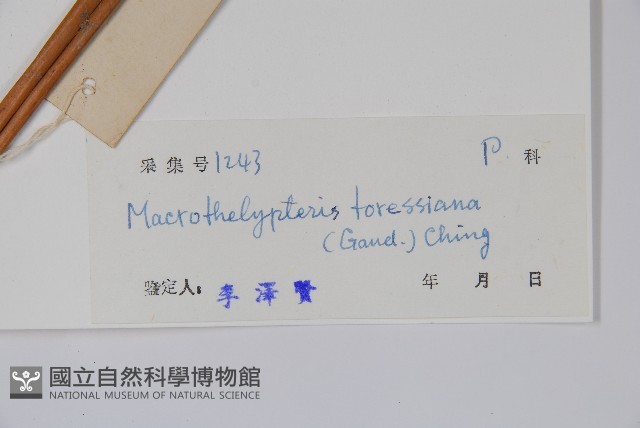 采集号 1243 P 科
Macrothelypteris toressiana
(Gaud.) Ching
鉴定人: 李澤賢 年 月 日
國立自然科學博物館
NATIONAL MUSEUM OF NATURAL SCIENCE